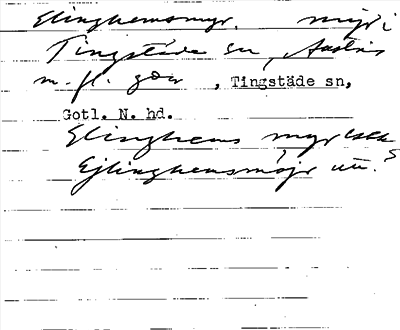 Elinghemsmyr. myr i
Tingstäde sn,
m. fl. går , Tingstäde sn,
Gotl. N. hd.
Elinghems myr
Ejlinghensmöjr